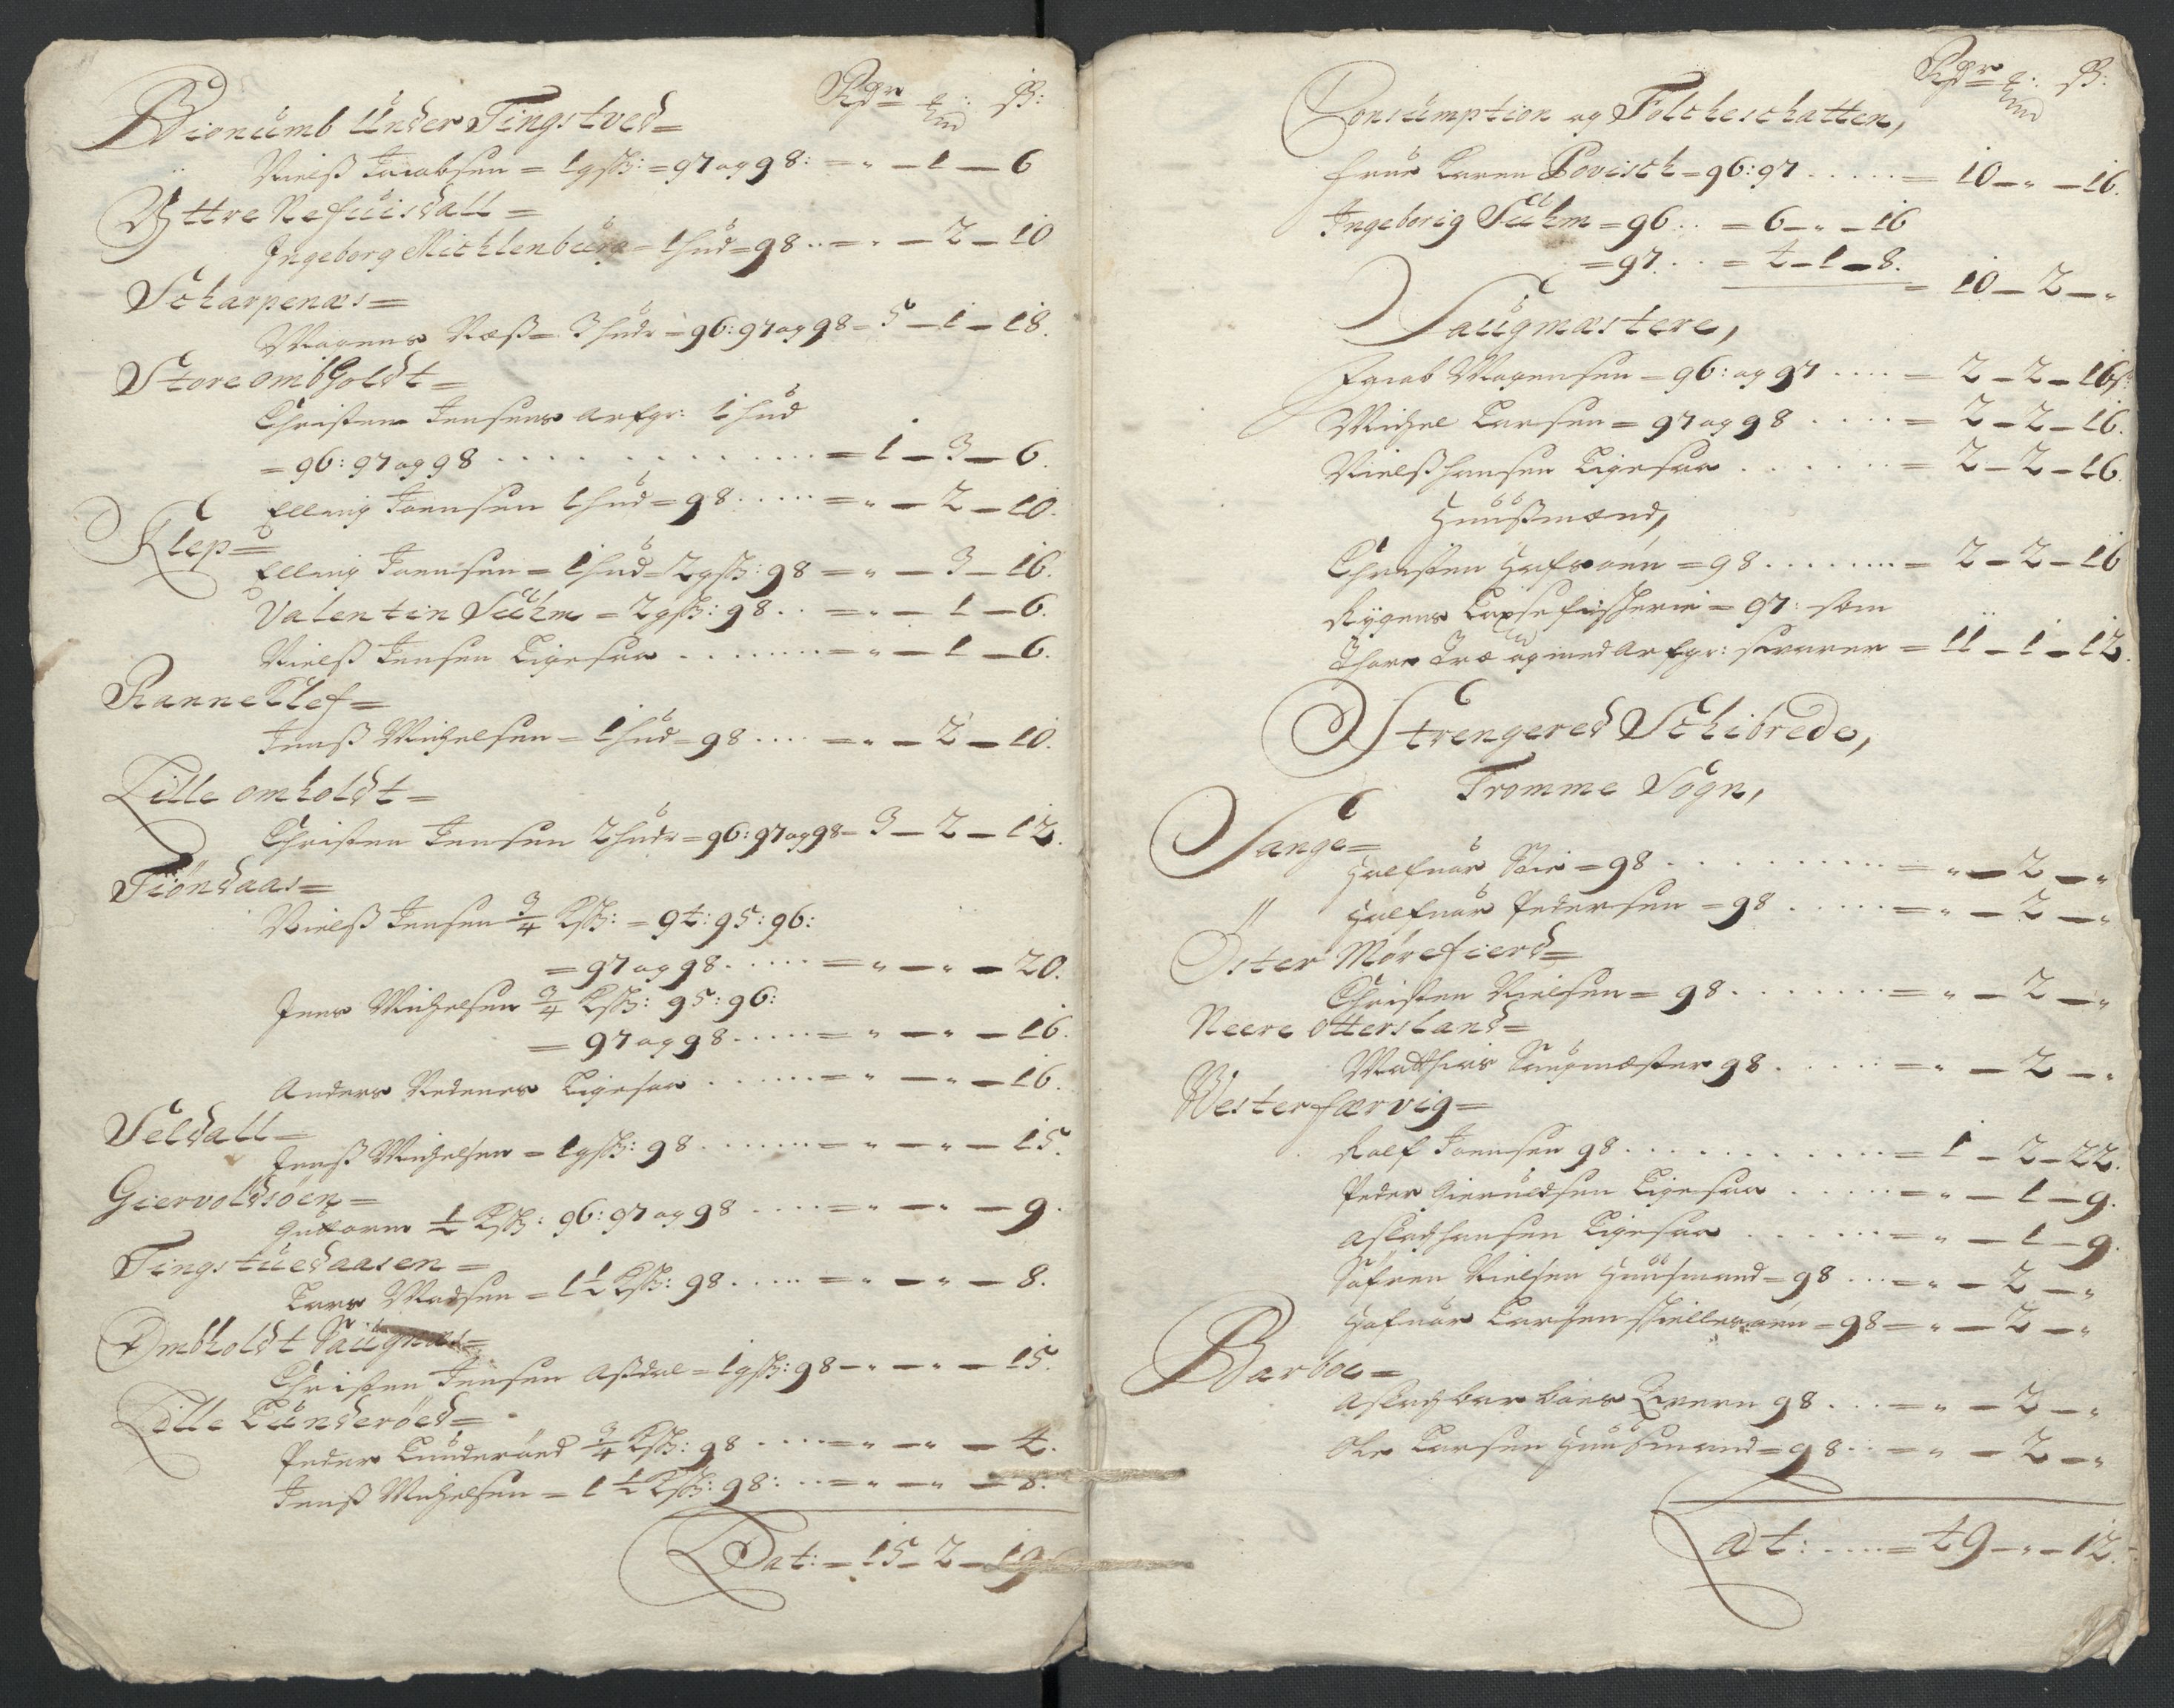 Rdr ort: ß:
Bionumb Under Tingstved=
Nielß Jacobsen = 1 gsk: = 97 og 98: = „ — 1 — 6
Yttre Nefuisdall =
Ingeborg Michlenburg = 1 hud = 98 .. = „ — 2 — 10
Scharpenæs =
Mogens Næß = 3 hudr = 96: 97 og 98 = 5 — 1 — 18.
Store ombholdt =
Christen Jensens arfgr: 1 hud
= 96: 97 og 98 . . . . . = 1 — 3 — 6.
Elling Joensen 1 hud = 98 ..... = „ — 2 — 10.
Klep =
Elling Joensen = 1 hud 2 gsk: 98 = „ — 3 — 16.
Valentin Sühm = 2 gsk: 98 .. = „ — 1 — 6.
Nielß Jensen Ligesaa . . . . . = „ — 1 — 6.
Ranneklef =
Jenß Michelsen = 1 hud = 98 .... = „ — 2 — 10.
Lille omholdt =
Christen Jensen 2 hudr = 96: 97 og 98 = 3 — 2 — 12.
Tiöndaas =
Nielß Jensen 3/4 ksk: = 94: 95: 96:
= 97 og 98 ..... = „ — „ — 20.
Jens Michelsen 3/4 ksk: 95: 96:
= 97 og 98 ..... = „ — „ — 16.
Anders Nedenes Ligesaa . . . . = „ — „ — 16.
Seldall =
Jenß Michelsen = 1 gsk: 98 ...... = „ — „ — 15.
Giervoldsøen =
Guttorm 1/2 ksk: 96: 97 og 98 .... = „ — „ — 9.
Tingstuedaasen =
Lars Madsen = 1 1/2 ksk: 98 ..... = „ — „ — 8.
Ombholdt Saugnæs =
Christen Jensen Assdal = 1 gsk: 98 — „ — „ — 15.
Lille Lunderöed =
Peder Lunderöed 3/4 ksk: 98 .... = „ — „ — 4.
Jenß Michelsen = 1 1/2 ksk: 98: .. = „ — „ — 8.
Lat: = 15 — 2 — 19
Rdr ort: ß:
Consumption og Folcheschatten,
frue Karen Povisch = 96: 97 ..... = 10 — „ — 16.
Ingeborig Sühm = 96 .. = 6 — „ — 16
= 97. .. = 4 — 1 — 8.
= 10 — 2 — „
Saugmæstere,
Jacob Mogensen = 96: og 97 .... = 2 — 2 — 16 ß:
Michel Larsen = 97 og 98 .... = 2 — 2 — 16.
Nielß hansen Ligesaa . . . . = 2 — 2 — 16.
Huußmænd,
Christen Hafsöen = 98 ....... = 2 — 2 — 16
Rygens Laxefischerie = 97: som
Thore Træ og med arfgr: svarer = 11 — 1 — 12.
Strengered Schibrede,
Tromme Sogn,
Sange =
Halfuor Boie = 98 . . . . . = „ — 2 — „
〃 Halfuor Pedersen = 98 ..... = „ — 2 — „
Öster Mørefierd =
Christen Nielsen = 98 ....... = „ — 2 — „
Neere Ottersland =
Matthias Saugmæster 98 ..... = „ — 2 — „
Wester færvig =
Rolf Joensen 98 . . . . . . = 1 — 2 — 22.
Peder Gieruldsen Ligesaa ..... = „ — 1 — 9.
Aslach hansen Ligesaa . . . . = „ — 1 — 9.
Söfren Nielsen Huusmand = 98 ... = „ — 2 — „
Hafuor Larsen = 98 = „ — 2 — „
Barboe =
Aslach Barboes 98 ... = „ — 2 — „
Ole Larsen Huusmand = 98 .. = „ — 2 — „
Lat: .... = 49 — „ — 12.